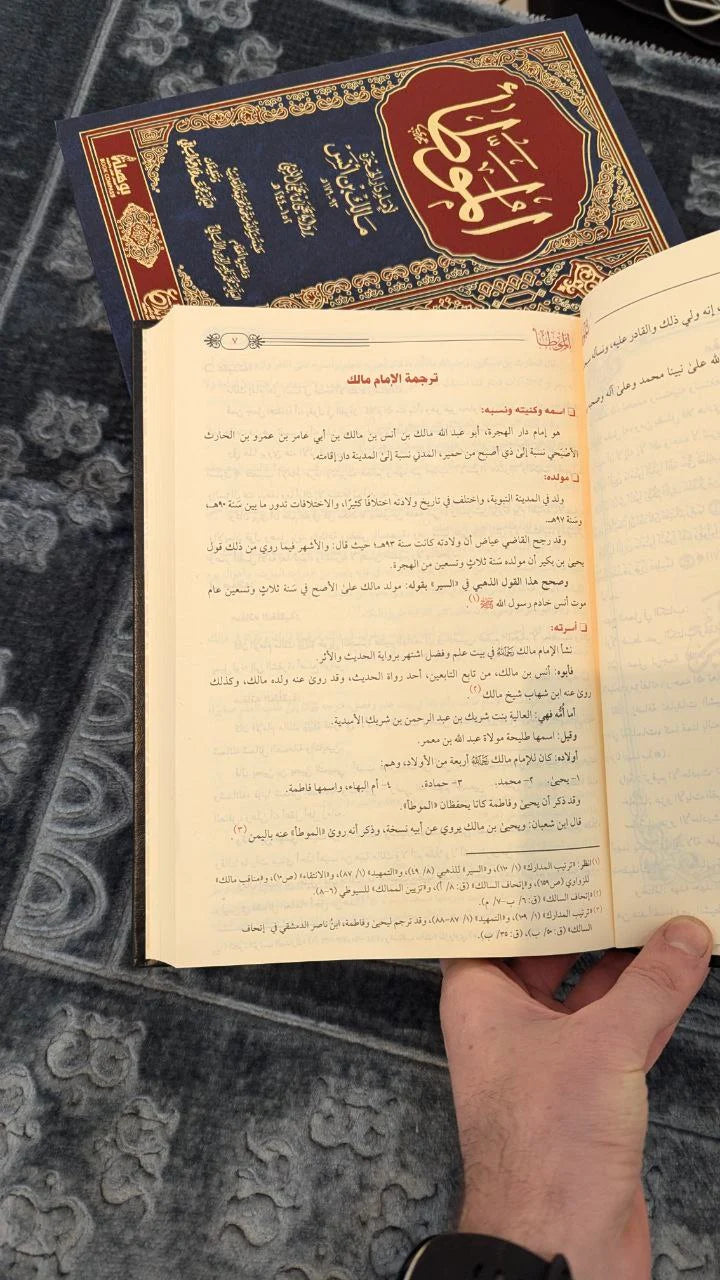 الموطأ
لإمام دار الهجرة
مالك بن أنس
٩٣-١٧٩هـ
الموطأ
٧
ترجمة الإمام مالك
❑ اسمه وكنيته ونسبه:
هو إمام دار الهجرة، أبو عبد الله مالك بن أنس بن مالك بن أبي عامر بن عمرو بن الحارث
الأصْبَحي نسبة إلىٰ ذي أصبح من حمير، المدني نسبة إلىٰ المدينة دار إقامته.
❑ مولده:
ولد في المدينة النبوية، واختلف في تاريخ ولادته اختلافًا كثيرًا، والاختلافات تدور ما بين سَنة ٩٠هـ،
وسَنة ٩٧هـ.
وقد رجح القاضي عياض أن ولادته كانت سنة ٩٣هـ؛ حيث قال: والأشهر فيما روي من ذلك قول
يحيىٰ بن بكير أن مولده سَنة ثلاثٍ وتسعين من الهجرة.
وصحح هذا القول الذهبي في «السير» بقوله: مولد مالك علىٰ الأصح في سَنة ثلاثٍ وتسعين عام
موت أنس خادم رسول الله ﷺ(١).
❑ أسرته:
نشأ الإمام مالك رَحِمَهُ اللَّهُ في بيت علم وفضل اشتهر برواية الحديث والأثر.
فأبوه: أنس بن مالك، من تابع التابعين، أحد رواة الحديث، وقد روىٰ عنه ولده مالك، وكذلك
روىٰ عنه ابن شهاب شيخ مالك(٢).
أما أُمُّه فهي: العالية بنت شريك بن عبد الرحمن بن شريك الأسدية.
وقيل: اسمها طليحة مولاة عبد الله بن معمر.
أولاده: كان للإمام مالك رَحِمَهُ اللَّهُ أربعة من الأولاد، وهم:
١- يحيىٰ. ٢- محمد. ٣- حمادة. ٤- أم البهاء، واسمها فاطمة.
وقد ذكر أن يحيىٰ وفاطمة كانا يحفظان «الموطأ».
قال ابن شعبان: ويحيىٰ بن مالك يروي عن أبيه نسخة، وذكر أنه روىٰ «الموطأ» عنه باليمن(٣).
(١) انظر: «ترتيب المدارك» (١/ ١١٠)، و«السير» للذهبي (٨/ ٤٩)، و«التمهيد» (١/ ٨٧)، و«الانتقاء» (ص١٠)، و«مناقب مالك»
للزواوي (ص١٥٩)، و«إتحاف السالك» (ق: ٨/ أ)، و«تزيين الممالك» للسيوطي (٦-٨).
(٢) «إتحاف السالك» (ق: ٦/ ب-٧/ م).
(٣) «ترتيب المدارك» (١/ ١٠٩)، و«التمهيد» (١/ ٨٧-٨٨)، وقد ترجم ليحيىٰ وفاطمة، ابنُ ناصر الدمشقي في إتحاف
السالك» (ق: ٥٠/ ب)، (ق: ٣٥/ ب).
إنه ولي ذلك والقادر عليه، ونسأله
الله علىٰ نبينا محمد وعلىٰ آله وصحبه